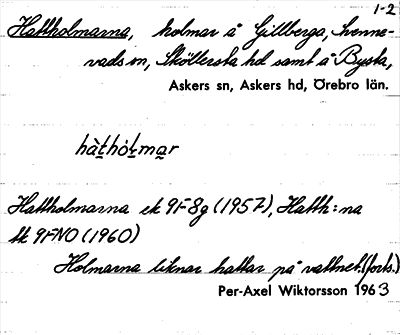 1-2
Hattholmarna, holmar å Gillberga, Svenne-
vads sn, Sköllersta hd samt å Bysta,
Askers sn, Askers hd, Örebro län.
hàt̲hòḷma̲r
Hattholmarna ek 9F8g (1957), Hatth:na
tk 9FNO (1960)
Holmarna liknar hattar på vattnet. (forts.)
Per-Axel Wiktorsson 1963